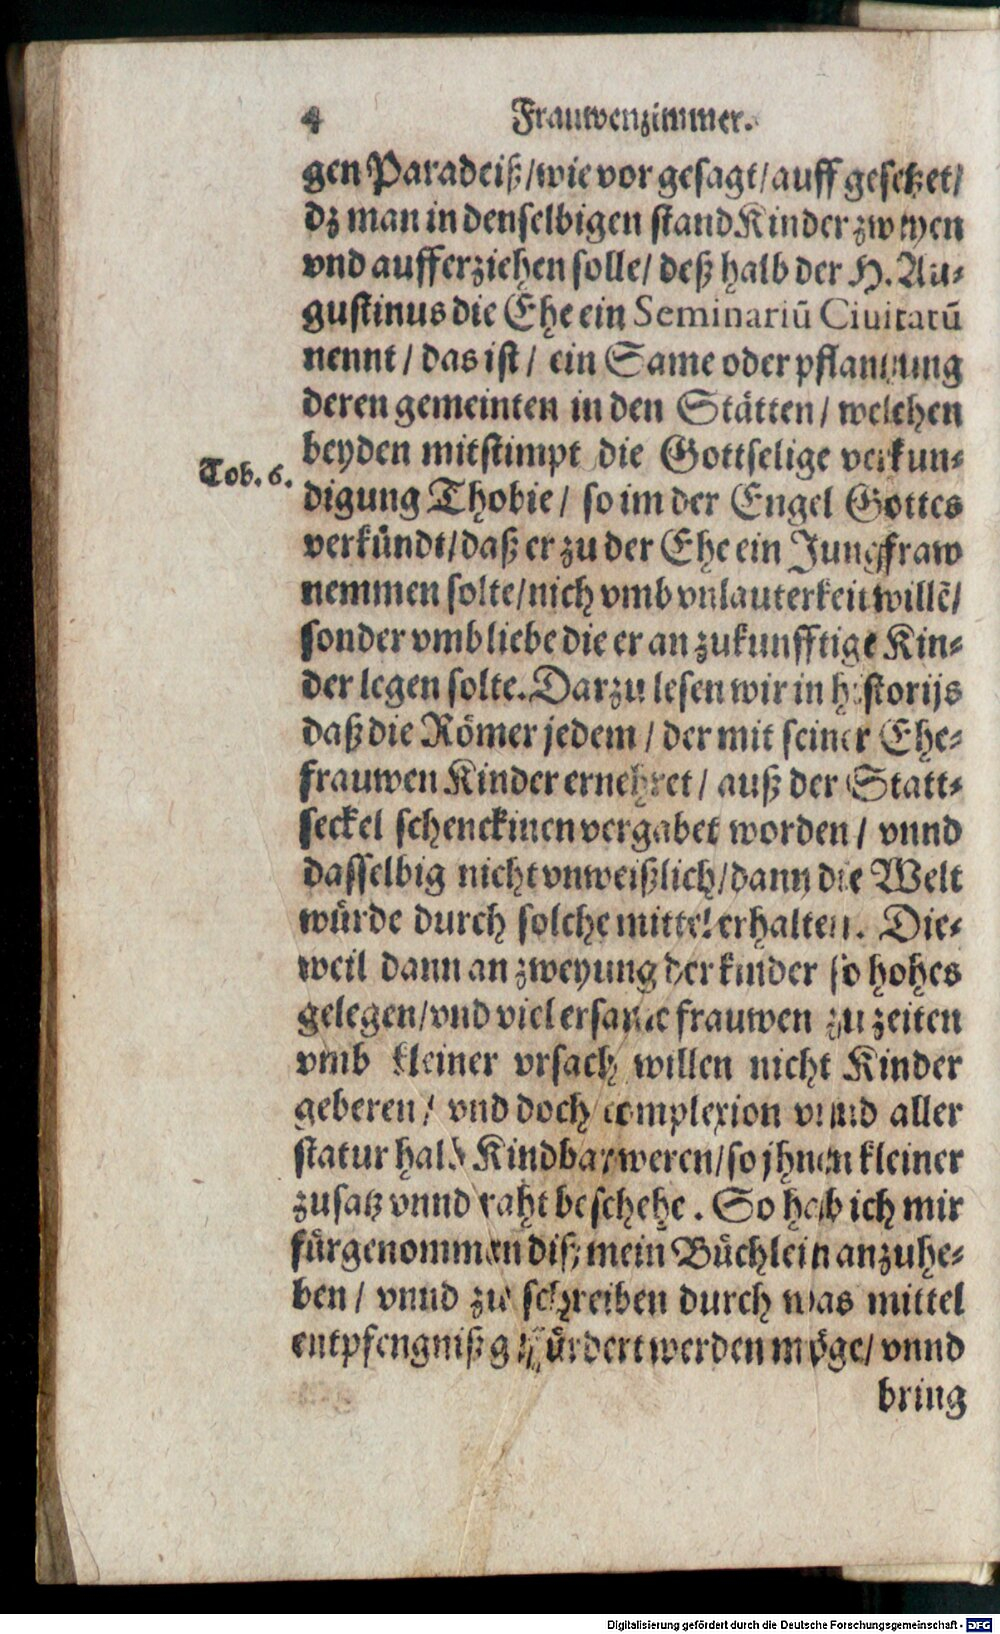 4 Frauwenzimmer.
gen Paradeiß/wie vor gesagt/auff gesetzet/
dz man in denselbigen stand Kinder zweyen
vnd aufferziehen solle/ deß halb der H. Au-
gustinus die Ehe ein Seminariū Ciuitatū
nennt/ das ist/ ein Same oder pflantzung
deren gemeinten in den Stätten/ welchen
beyden mitstimpt die Gottselige verkun-
Tob. 6.
digung Thobie/ so im der Engel Gottes
verkündt/daß er zu der Ehe ein Jungffraw
nemmen solte/nich vmb vnlauterkeit willē/
sonder vmb liebe die er an zukunfftige Kin-
der legen solte. Darzu lesen wir in historijs
daß die Römer jedem/ der mit seiner Ehe-
frauwen Kinder ernehret/ auß der Statt-
seckel schenckinen vergabet worden/ vnnd
dasselbig nicht vnweißlich/dann die Welt
würde durch solche mittel erhalten. Die-
weil dann an zweyung der kinder so hohes
gelegen/vnd viel ersame frauwen zu zeiten
vmb kleiner vrsach willen nicht Kinder
geberen/ vnd doch complexion vnnd aller
statur halb Kindbar weren/so jhnen kleiner
zusatz vnnd raht beschehe. So hab ich mir
fürgenommen diß mein Büchlein anzuhe-
ben/ vnnd zu schreiben durch was mittel
entpfengniß gefürdert werden möge/ vnnd
bring
Digitalisierung gefördert durch die Deutsche Forschungsgemeinschaft - DFG